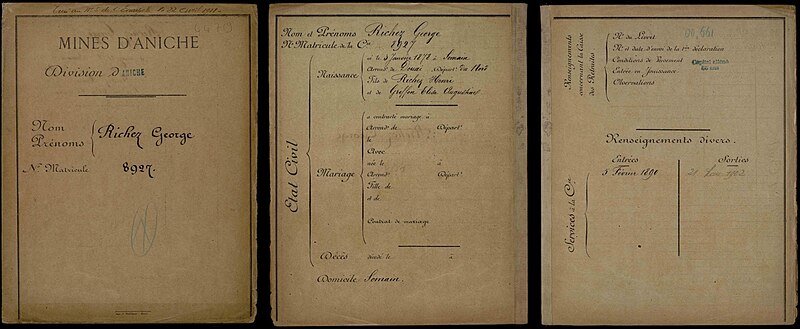 MINES D'ANICHE
Division d'ANICHE
Nom
Prénoms
Richez George
No Matricule
8927.
Nom et Prénoms Richez George
No Matricule de la Cie
État Civil
Naissance
né le 5 Janvier 1878 à Somain
Arrondt de Douai Départt du Nord
Fils de Richez Henri
et de
Mariage
a contracté mariage à
Arrondt de Départt
le
Avec
née le à
Arrondt Départt
Fille de
et de
Contrat de mariage
Décès
décédé le à
Domicile Somain.
Renseignements
concernant la Caisse
des Retraites
No du Livret
No et date d'envoi de la 1ère déclaration
Conditions de versement
Entrée en Jouissance
Observations
Renseignements divers.
Services à la Cie
Entrées Sorties
5 Février 1890